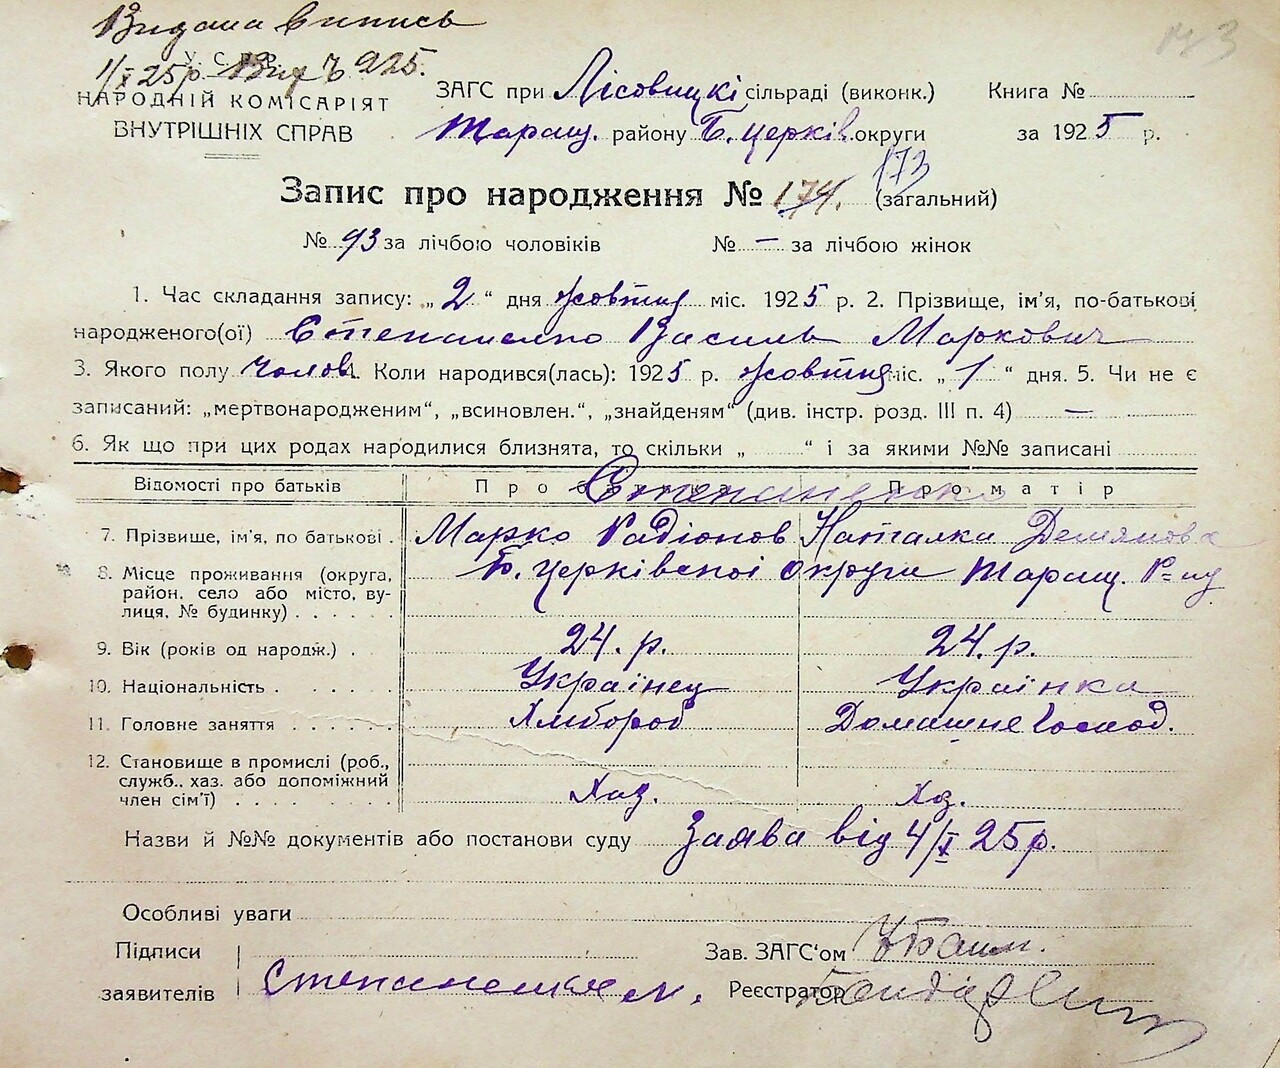 Видана випись
У.С.Р.Р.
1/X 25 р. Вих Ч 225.
НАРОДНІЙ КОМІСАРІЯТ
ВНУТРІШНІХ СПРАВ
ЗАГС при Лісовицкі сільраді (виконк.) Книга №
Таращ. району Б. церків. округи за 1925 р.
173
Запис про народження № 174. (загальний)
№ 93 за лічбою чоловіків № — за лічбою жінок
1. Час складання запису: „ 2 “ дня жовтня міс. 1925 р. 2. Прізвище, ім'я, по-батькові
народженого(ої) Степаненко Василь Маркович
3. Якого полу чолов. 4. Коли народився(лась): 1925 р. жовтня міс. „ 1 “ дня. 5. Чи не є
записаний: „мертвонародженим“, „всиновлен.“, „знайденям“ (див. інстр. розд. III п. 4) —
6. Як що при цих родах народилися близнята, то скільки „ “ і за якими №№ записані
Відомості про батьків Про батька Про матір
Степаненко
7. Прізвище, ім'я, по батькові . Марко Радіонов Наталка Демянова
8. Місце проживання (округа, район, село або місто, вулиця, № будинку) Б. Церківскої округи Таращ. Р-ну
9. Вік (років од народж.) . 24. р. 24. р.
10. Національність . . . . . Українец Українка
11. Головне заняття . . . . . Хлібороб Домашнє Господ.
12. Становище в промислі (роб., служб., хаз. або допоміжний член сім'ї) . . . . . Хаз. Хаз.
Назви й №№ документів або постанови суду Заява від 4/X 25 р.
Особливі уваги
Підписи Зав. ЗАГС'ом
заявителів Степаненко М. Реєстратор